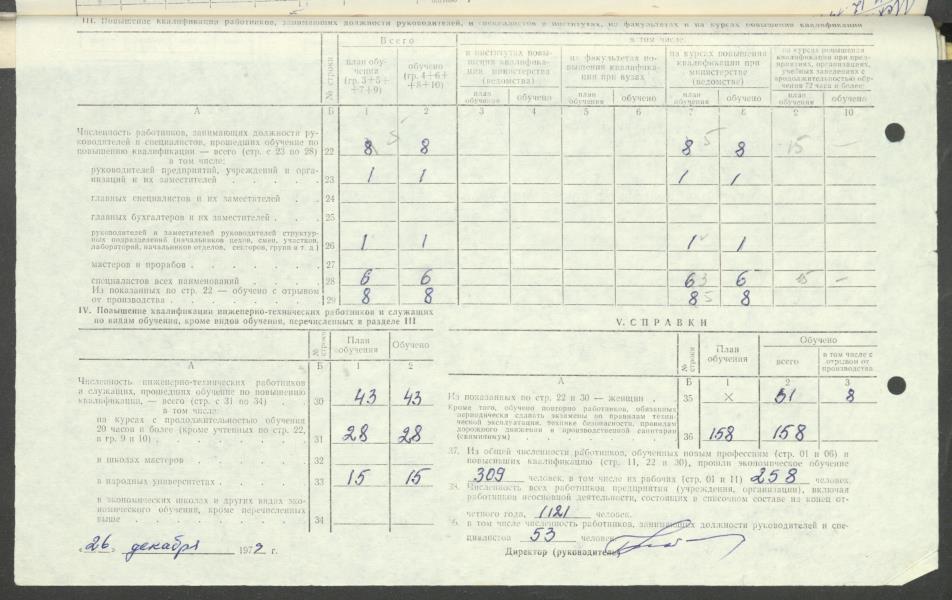 III. Повышение квалификации работников, занимающих должности руководителей, и специалистов в институтах, на факультетах и на курсах повышения квалификации
№ строки
Всего
в том числе
план обу-
чения
(гр. 3+5+
+7+9)
обучено
(гр. 4+6+
+8+10)
в институтах повы-
шения квалифика-
ции министерства
(ведомства)
на факультетах по-
вышения квалифика-
ции при вузах
на курсах повышения
квалификации при
министерстве
(ведомстве)
на курсах повышения
квалификации при пред-
приятиях, организациях,
учебных заведениях с
продолжительностью обу-
чения 72 часа и более
план обучения обучено план обучения обучено план обучения обучено план обучения обучено
А Б 1 2 3 4 5 6 7 8 9 10
Численность работников, занимающих должности ру-
ководителей и специалистов, прошедших обучение по
повышению квалификации — всего (стр. с 23 по 28) 22 8 5 8 8 5 8 15 —
в том числе:
руководителей предприятий, учреждений и орга-
низаций и их заместителей 23 1 1 1 1
главных специалистов и их заместителей 24
главных бухгалтеров и их заместителей 25
руководителей и заместителей руководителей структур-
ных подразделений (начальников цехов, смен, участков,
лабораторий, начальников отделов, секторов, групп и т. д.) 26 1 1 1 1
мастеров и прорабов 27
специалистов всех наименований 28 6 6 6 3 6 15 —
Из показанных по стр. 22 — обучено с отрывом
от производства 29 8 8 8 5 8
IV. Повышение квалификации инженерно-технических работников и служащих
по видам обучения, кроме видов обучения, перечисленных в разделе III
№ строки План обучения Обучено
А Б 1 2
Численность инженерно-технических работников
и служащих, прошедших обучение по повышению
квалификации, — всего (стр. с 31 по 34) 30 43 43
в том числе:
на курсах с продолжительностью обучения
20 часов и более (кроме учтенных по стр. 22,
в гр. 9 и 10) 31 28 28
в школах мастеров 32
в народных университетах 33 15 15
в экономических школах и других видах эко-
номического обучения, кроме перечисленных
выше 34
«26» декабря 1979 г.
V. СПРАВКИ
№ строки План обучения Обучено
всего в том числе с отрывом от производства
А Б 1 2 3
Из показанных по стр. 22 и 30 — женщин 35 × 51 8
Кроме того, обучено повторно работников, обязанных
периодически сдавать экзамены по правилам техни-
ческой эксплуатации, технике безопасности, правилам
дорожного движения и производственной санитарии
(санминимум) 36 158 158
37. Из общей численности работников, обученных новым профессиям (стр. 01 и 06) и
повысивших квалификацию (стр. 11, 22 и 30), прошли экономическое обучение
309 человек, в том числе из рабочих (стр. 01 и 11) 258 человек.
Численность всех работников предприятия (учреждения, организации), включая
работников неосновной деятельности, состоящих в списочном составе на конец от-
четного года, 1121 человек.
в том числе численность работников, занимающих должности руководителей и спе-
циалистов 53 человек
Директор (руководитель)